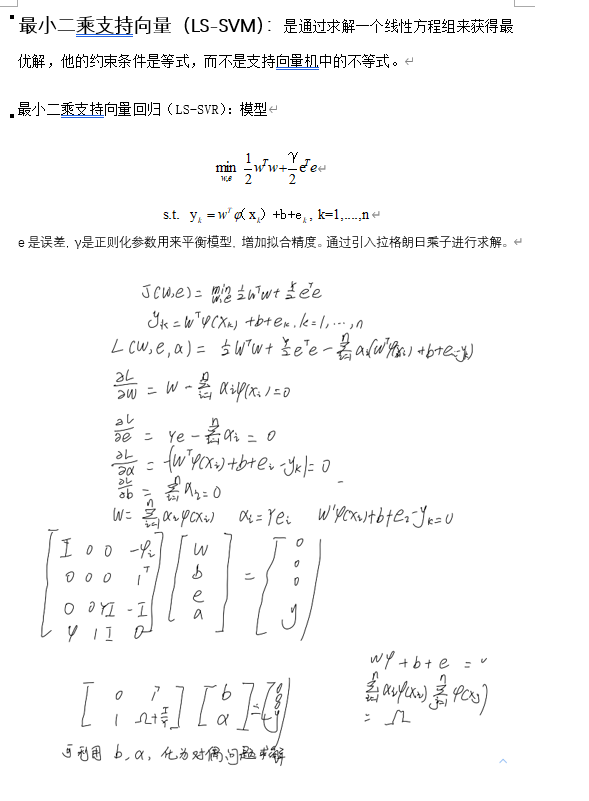 最小二乘支持向量（LS-SVM）：是通过求解一个线性方程组来获得最
优解，他的约束条件是等式，而不是支持向量机中的不等式。
最小二乘支持向量回归（LS-SVR）：模型
min w,e 1/2 w^T w + γ/2 e^T e
s.t. y_k = w^T φ(x_k) +b+e_k, k=1,....,n
e 是误差，γ是正则化参数用来平衡模型，增加拟合精度。通过引入拉格朗日乘子进行求解。
J(w,e) = min w,e 1/2 w^T w + γ/2 e^T e
y_k = w^T φ(x_k) + b + e_k, k=1, ..., n
L(w,e,α) = 1/2 w^T w + γ/2 e^T e - Σ_{i=1}^n α_i (w^T φ(x_i) + b + e_i - y_k)
∂L/∂w = w - Σ_{i=1}^n α_i φ(x_i) = 0
∂L/∂e = γe - Σ_{i=1}^n α_i = 0
∂L/∂α = -(w^T φ(x_i) + b + e_i - y_k) = 0
∂L/∂b = Σ_{i=1}^n α_i = 0
w = Σ_{i=1}^n α_i φ(x_i) α_i = γe_i w^T φ(x_i) + b + e_i - y_k = 0
[ I 0 0 -φ_i ] [ w ] [ 0 ]
[ 0 0 0 1^T ] [ b ] = [ 0 ]
[ 0 0 γI -I ] [ e ] [ 0 ]
[ φ 1 I 0 ] [ α ] [ y ]
wφ + b + e =
Σ_{i=1}^n α_i φ(x_i) Σ_{j=1}^n φ(x_j)
= Ω
[ 0 1^T ] [ b ] =
[ 1 Ω+I/γ ] [ α ] [ y ]
可利用 b, α, 化为对偶问题求解